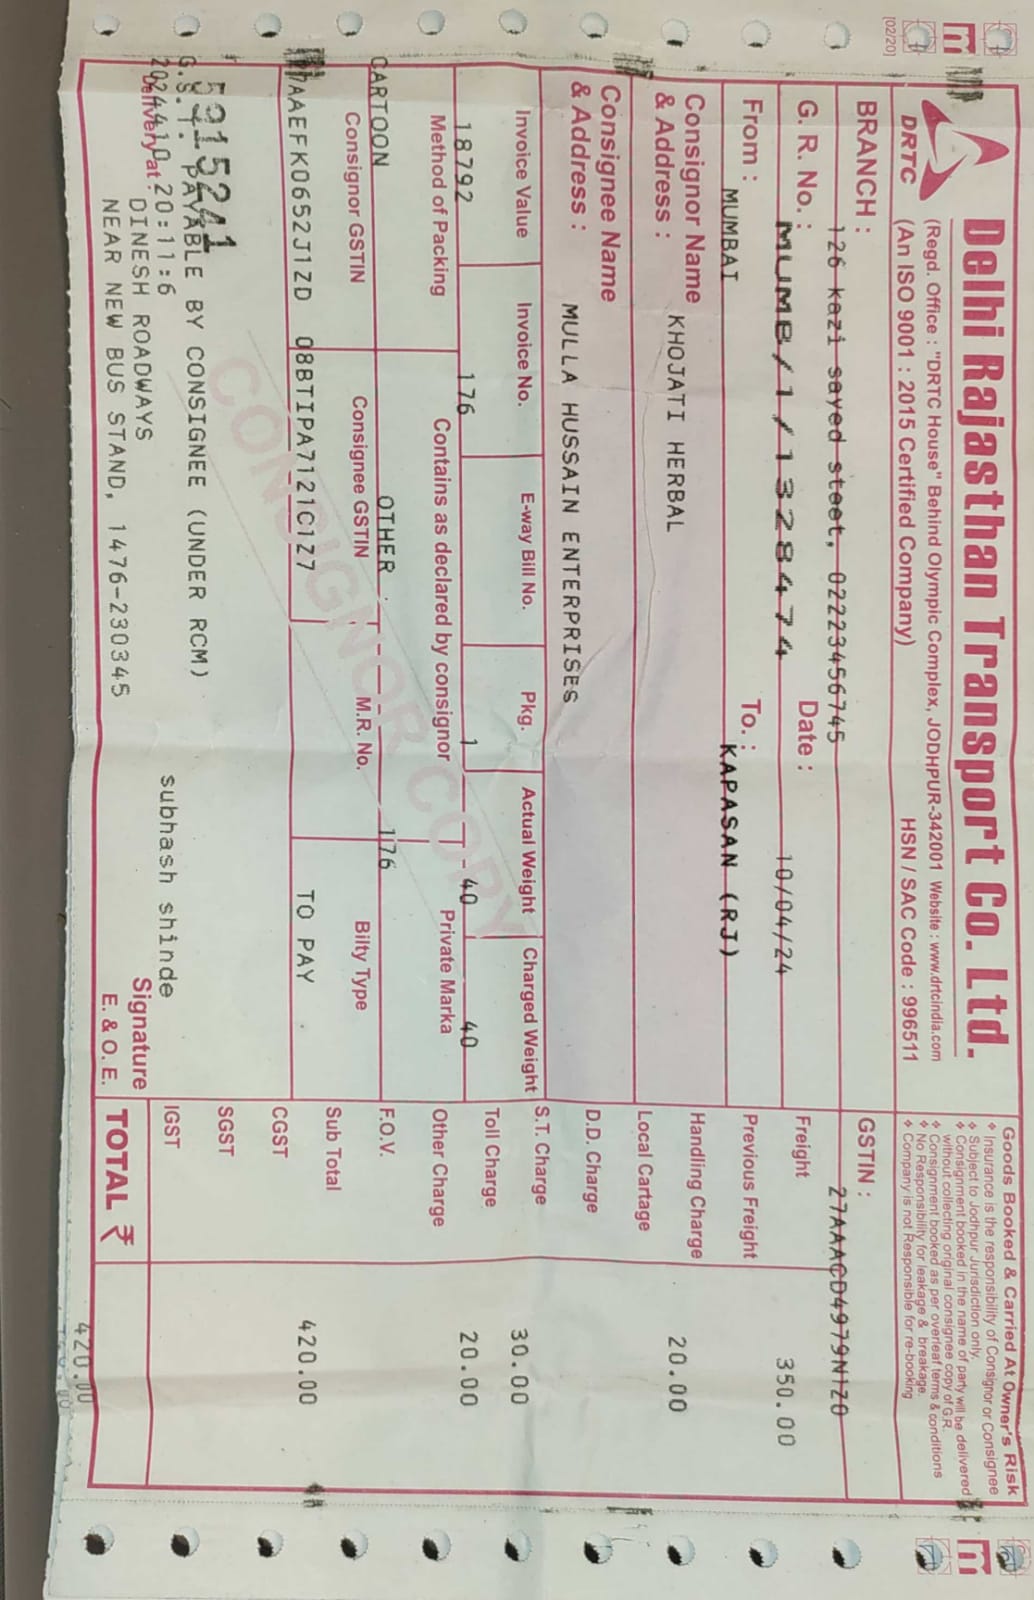 [02/20]
DRTC
Delhi Rajasthan Transport Co. Ltd.
(Regd. Office : "DRTC House" Behind Olympic Complex, JODHPUR-342001 Website : www.drtcindia.com
(An ISO 9001 : 2015 Certified Company) HSN / SAC Code : 996511
Goods Booked & Carried At Owner's Risk
❖ Insurance is the responsibility of Consignor or Consignee
❖ Subject to Jodhpur Jurisdiction only.
❖ Consignment booked in the name of party will be delivered
without collecting original consignee copy of G.R.
❖ Consignment booked as per overleaf terms & conditions
❖ No Responsibility for leakage & breakage.
❖ Company is not Responsible for re-booking
BRANCH : 126 kazi sayed steet, 02223456745
GSTIN : 27AAACD4979N1Z0
G. R. No. : MUMB/1/13284474 Date : 10/04/24
Freight 350.00
From : MUMBAI To. : KAPASAN (RJ)
Previous Freight
Consignor Name
& Address : KHOJATI HERBAL
Handling Charge 20.00
Local Cartage
Consignee Name
& Address : MULLA HUSSAIN ENTERPRISES
D.D. Charge
Invoice Value Invoice No. E-way Bill No. Pkg. Actual Weight Charged Weight
S.T. Charge 30.00
18792 176 1 40 40
Toll Charge 20.00
Method of Packing Contains as declared by consignor Private Marka
Other Charge
CARTOON OTHER 176
F.O.V.
Consignor GSTIN Consignee GSTIN M.R. No. Bilty Type
Sub Total 420.00
27AAEFK0652J1ZD 08BTIPA7121C1Z7 TO PAY
CGST
CONSIGNOR COPY
5915241
SGST
G.S.T. PAYABLE BY CONSIGNEE (UNDER RCM)
2024410 20:11:6 subhash shinde
IGST
Delivery at : DINESH ROADWAYS Signature
NEAR NEW BUS STAND, 1476-230345 E. & O. E.
TOTAL ₹ 420.00